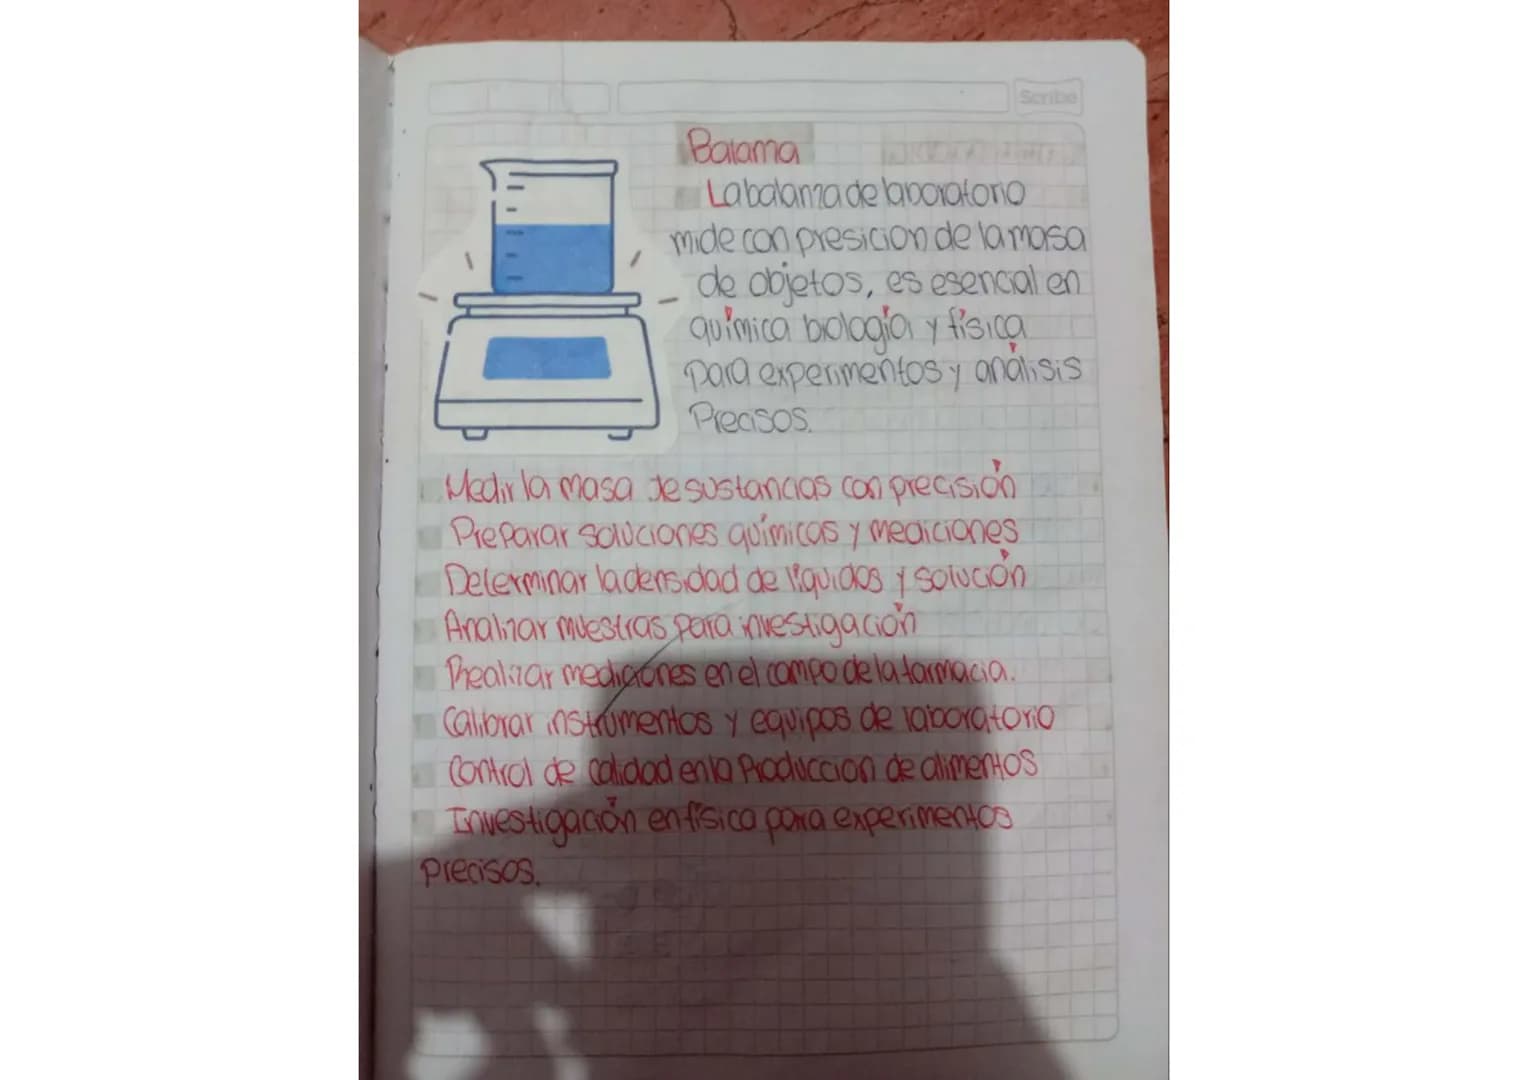 Scribe
Balanza
La balanza de laboratorio
mide con presicion de la masa
de objetos, es esencial en
química biología y física
para experimentos y análisis
Precisos.
Medir la masa de sustancias con precisión
Preparar soluciones químicas y mediciones
Determinar la densidad de líquidos y solución
Analizar muestras para investigación
Realizar mediciones en el campo de la farmacia.
Calibrar instrumentos y equipos de laboratorio
Control de calidad en la Produccion de alimentos
Investigación en física para experimentos
precisos.